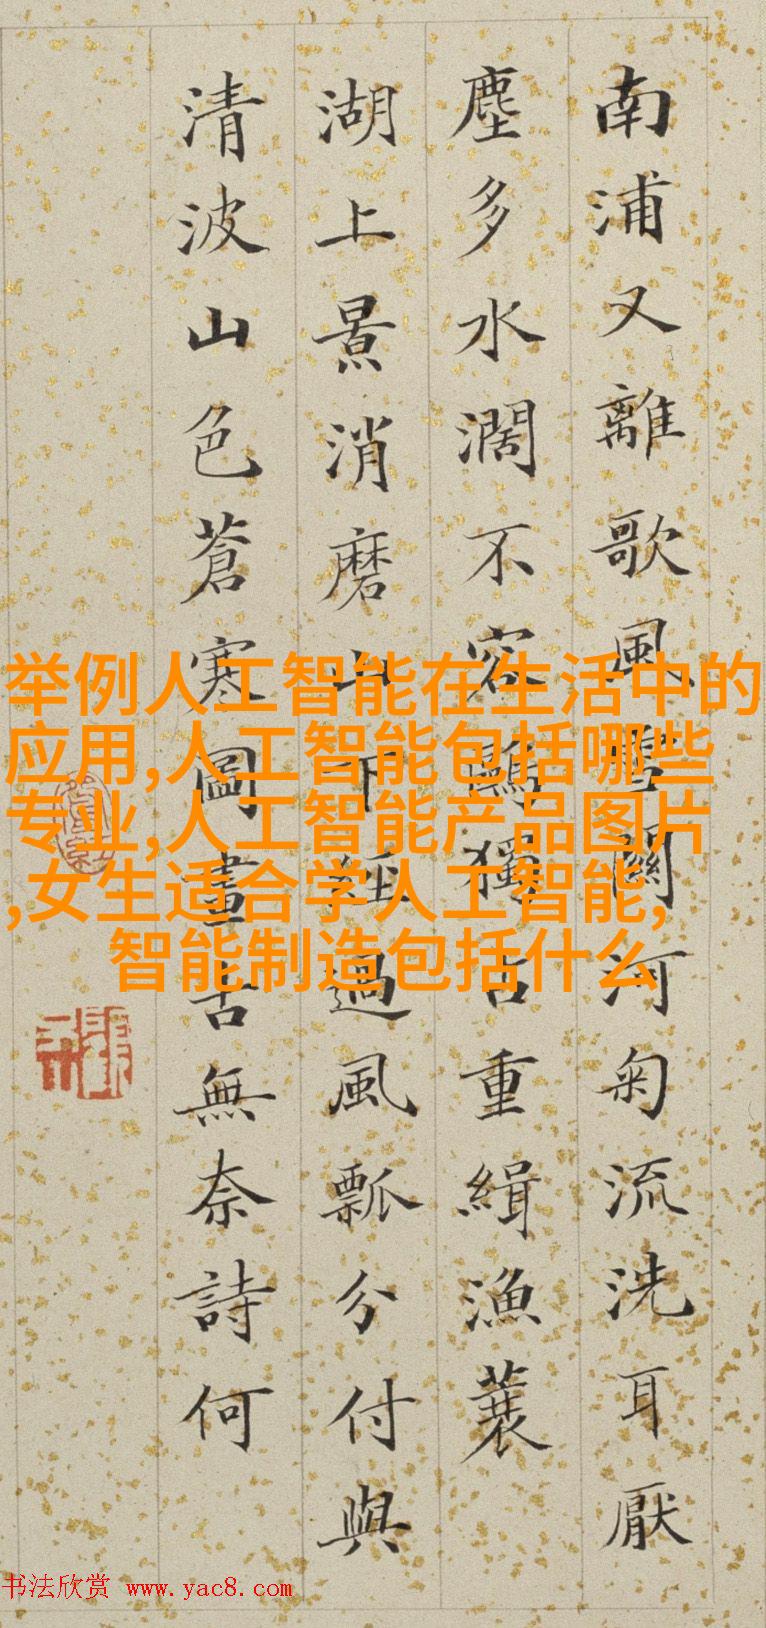 南浦又離歌風雪關河匊流洗耳厭
塵多水濶不容鷗獨占重緝漁蓑
湖上景消磨山下經過風瓢分付與
清波山色蒼寒圖畫古無奈詩何
举例人工智能在生活中的
应用,人工智能包括哪些
专业,人工智能产品图片
,女生适合学人工智能,
智能制造包括什么
书法欣赏 www.yac8.com